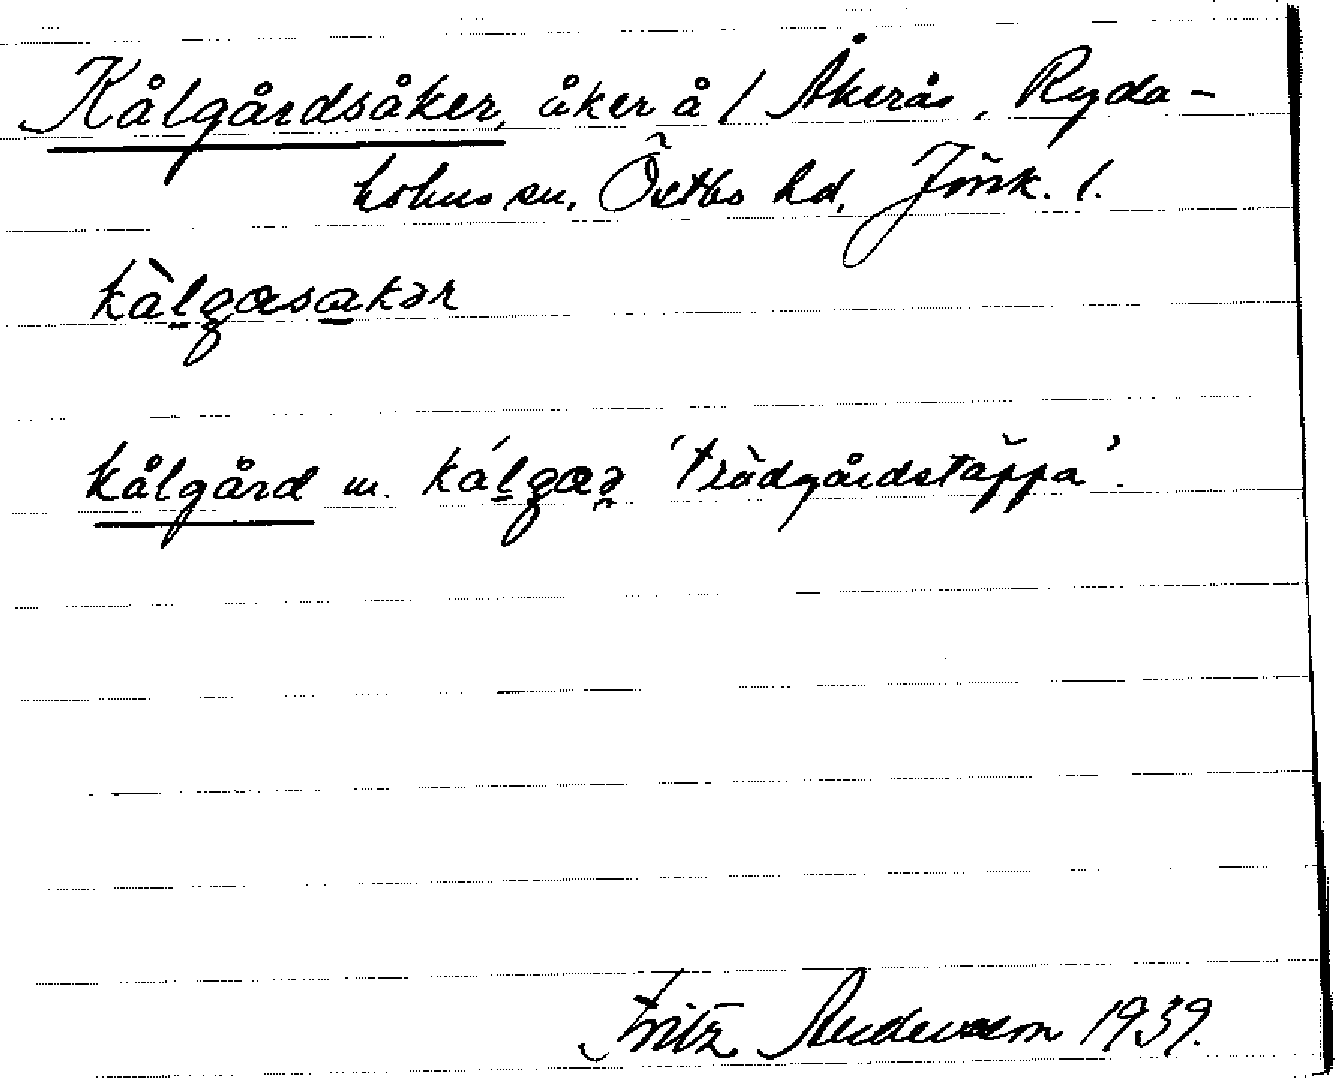 Kålgårdsåker, åker å / Åkerås, Ryda-
holms sn, Östbo hd, Jönk. l.
kàlgasakər
kålgård m. kálgaə 'trädgårdstäppa'.
Fritz Andersson 1939.